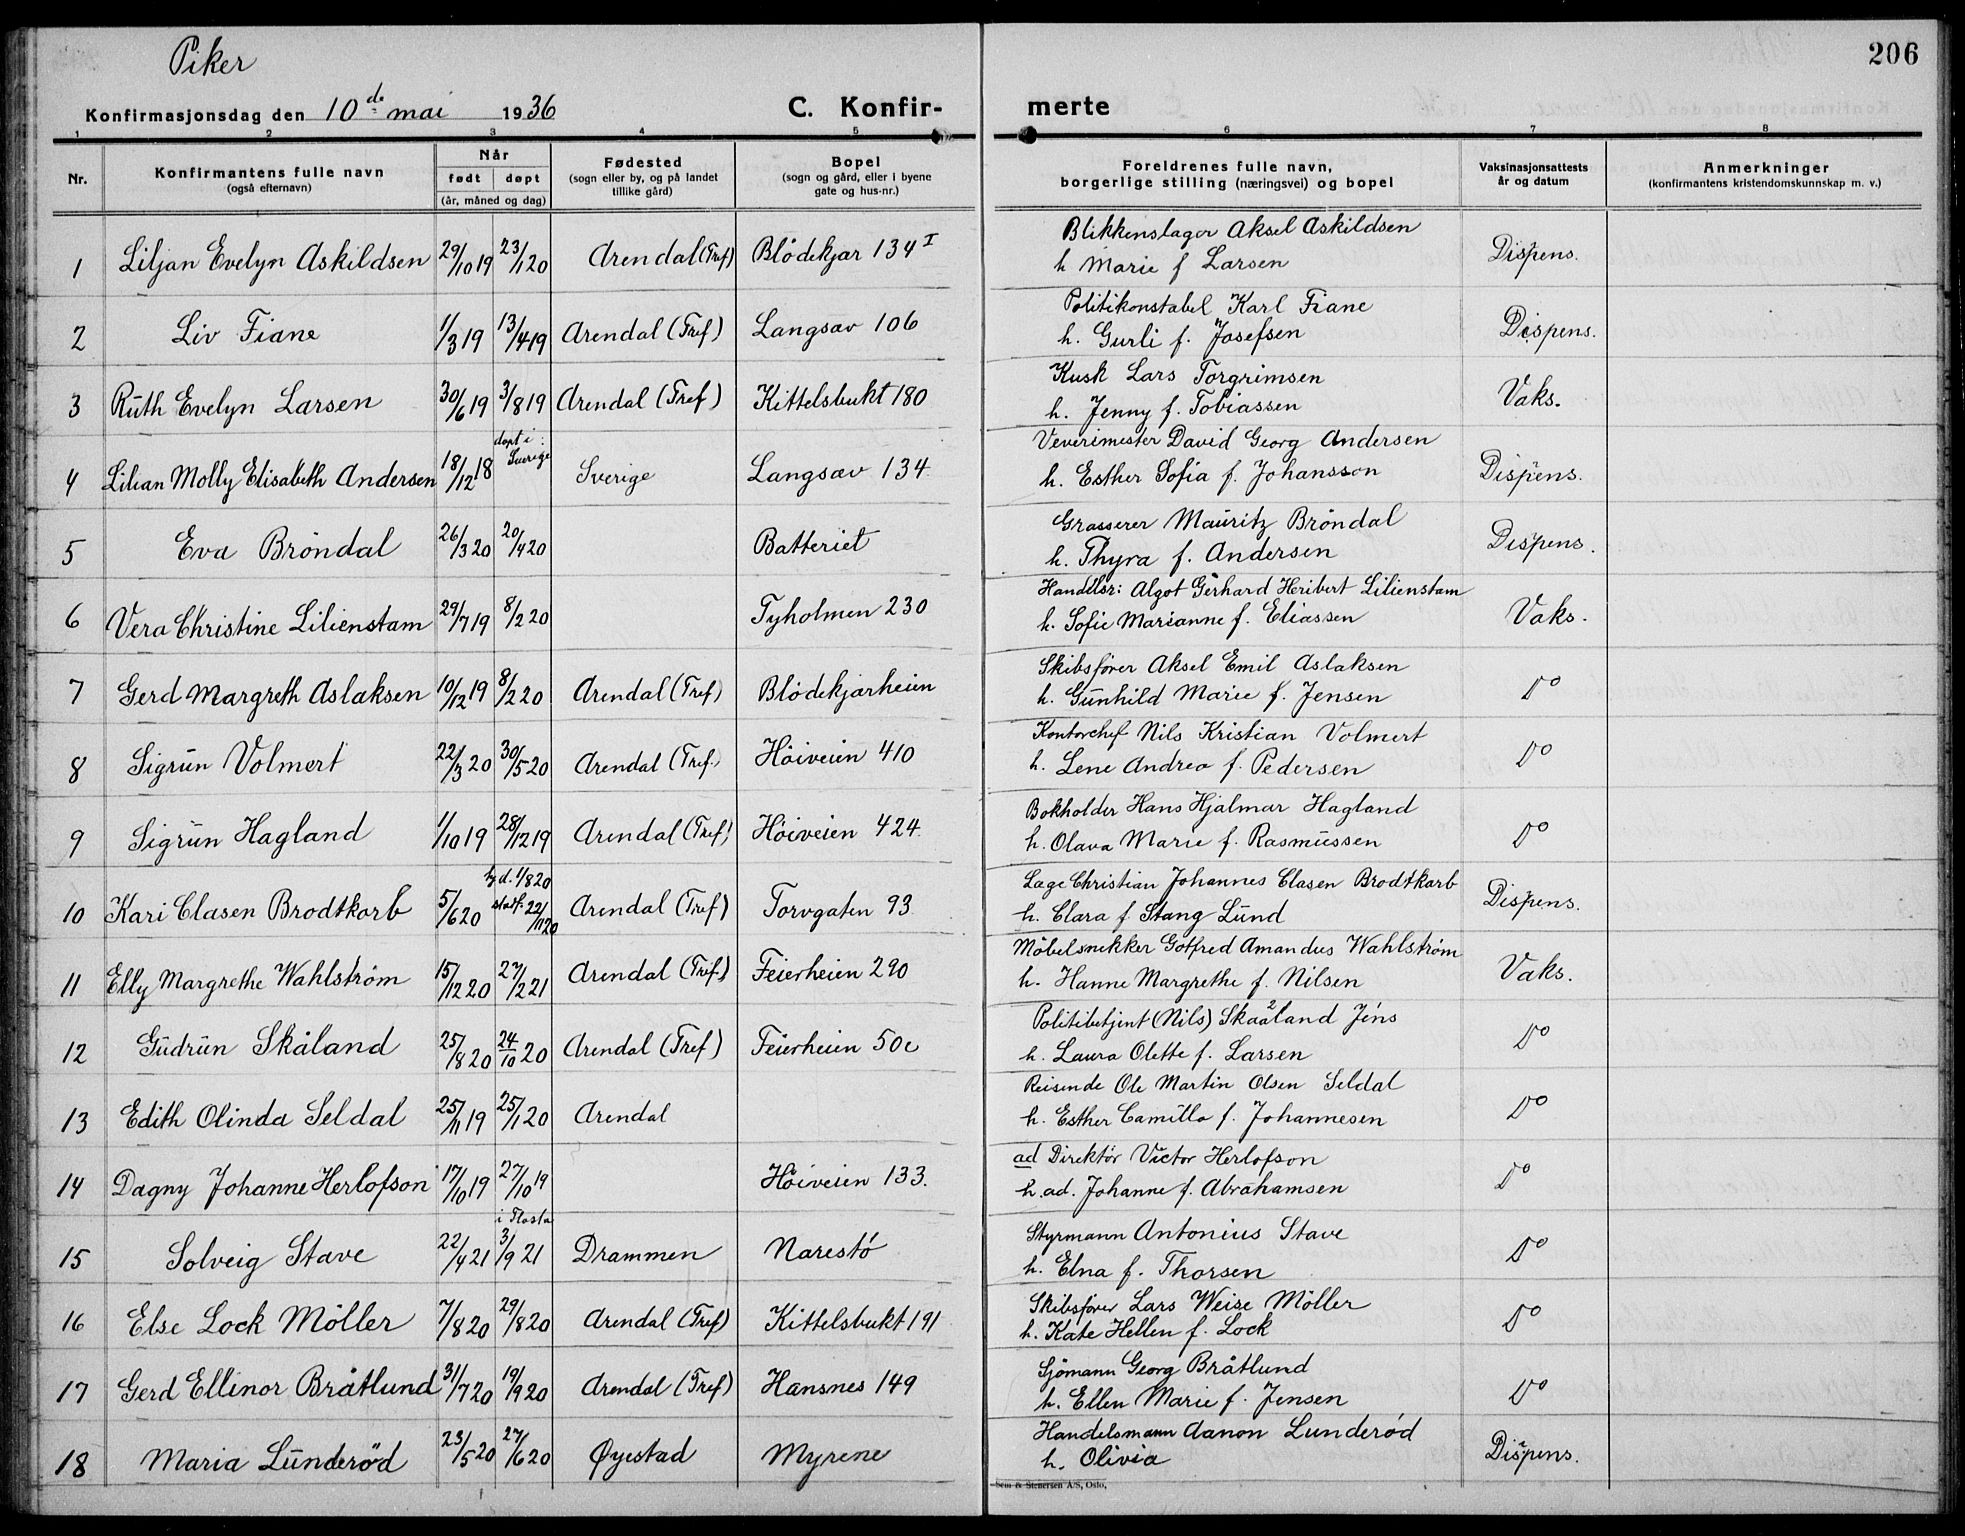 Piker
206
Konfirmasjonsdag den 10de mai 1936
C. Konfir-
merte
1 2 3 4 5 6 7 8
Nr.
Konfirmantens fulle navn
(også efternavn)
Når
født døpt
(år, måned og dag)
Fødested
(sogn eller by, og på landet
tillike gård)
Bopel
(sogn og gård, eller i byene
gate og hus-nr.)
Foreldrenes fulle navn,
borgerlige stilling (næringsvei) og bopel
Vaksinasjonsattests
år og datum
Anmerkninger
(konfirmantens kristendomskunnskap m. v.)
1 Liljan Evelyn Askildsen 29/10 19 23/1 20 Arendal (Tref) Blödekjar 134 I Blikkenslager Aksel Askildsen
h Marie f Larsen Dispens.
2 Liv Fiane 1/3 19 13/4 19 Arendal (Tref) Langsav 106 Politikonstabel Karl Fiane
h. Gurli f. Josefsen Dispens.
3 Ruth Evelyn Larsen 30/6 19 3/8 19 Arendal (Tref) Kittelsbukt 180 Kusk Lars Torgrimsen
h. Jenny f. Tobiassen Vaks.
döpt i
Sverige
4 Lilian Molly Elisabeth Andersen 18/12 18 Sverige Langsæv 134. Veverimester David Georg Andersen
h. Esther Sofia f. Johansson Dispens.
5 Eva Bröndal 26/3 20 20/4 20 Batteriet Grosserer Mauritz Bröndal
h. Thyra f. Andersen Dispens.
6 Vera Christine Lilienstam 29/7 19 8/2 20 Tyholmen 230 Handelsr: Algot Gerhard Heribert Lilienstam
h. Sofie Marianne f. Eliassen Vaks.
7 Gerd Margreth Aslaksen 10/12 19 8/2 20 Arendal (Tref) Blödekjarheien Skibsfører Aksel Emil Aslaksen
h. Gunhild Marie f. Jensen Do
8 Sigrun Volmert 22/3 20 30/5 20 Arendal (Tref.) Höiveien 410 Kontorchef Nils Kristian Volmert
h. Lene Andrea f. Pedersen Do
9 Sigrun Hagland 1/10 19 28/12 19 Arendal (Tref) Höiveien 424. Bokholder Hans Hjalmar Hagland
h. Olava Marie f. Rasmussen Do
hj d. 1/8 20
stadf. 22/11 20
10 Kari Clasen Brodtkorb 5/6 20 Arendal (Tref) Torvgaten 93 Læge Christian Johannes Clasen Brodtkorb
h. Clara f. Stang Lund Dispens.
11 Elly Margrethe Wahlström 15/12 20 27/2 21 Arendal (Tref) Feierheien 290 Möbelsnekker Gotfred Amandus Wahlström
h. Hanne Margrethe f. Nilsen Vaks.
12 Gudrun Skåland 25/8 20 24/10 20 Arendal (Tref) Feierheien 50c Politibetjent (Nils) Skaaland Jens
h. Laura Olette f. Larsen Do
13 Edith Olinda Seldal 25/11 19 25/1 20 Arendal Reisende Ole Martin Olsen Seldal
h. Esther Camilla f. Johannesen Do
14 Dagny Johanne Herlofson 17/10 19 27/10 19 Höiveien 133. ad Direktör Victor Herlofson
h. ad. Johanne f. Abrahamsen Do
i Flosta
15 Solveig Stave 22/4 21 3/9 21 Drammen Narestö Styrmann Antonius Stave
h. Elna f. Thorsen Do
16 Else Lock Möller 7/8 20 29/8 20 Arendal (Tref) Kittelsbukt 191 Skibsfører Lars Weise Möller
h. Kate Hellen f. Lock Do
17 Gerd Ellinor Bråtlund 31/7 20 19/9 20 Arendal (Tref) Hansnes 149 Sjömann Georg Bråtlund
h. Ellen Marie f. Jensen Do
18 Maria Lunderød 23/5 20 27/6 20 Øyestad Myrene Handelsmann Aanon Lunderød
h. Olivia Dispens.
Sem & Stenersen A/S, Oslo.